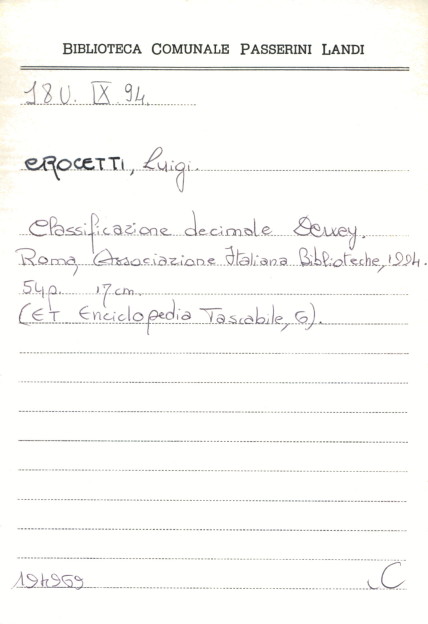 BIBLIOTECA COMUNALE PASSERINI LANDI
18U. IX 94.
CROCETTI, Luigi.
Classificazione decimale Dewey.
Roma, Associazione Italiana Biblioteche, 1994.
54p. 17cm.
(ET Enciclopedia Tascabile, 6).
194969 C